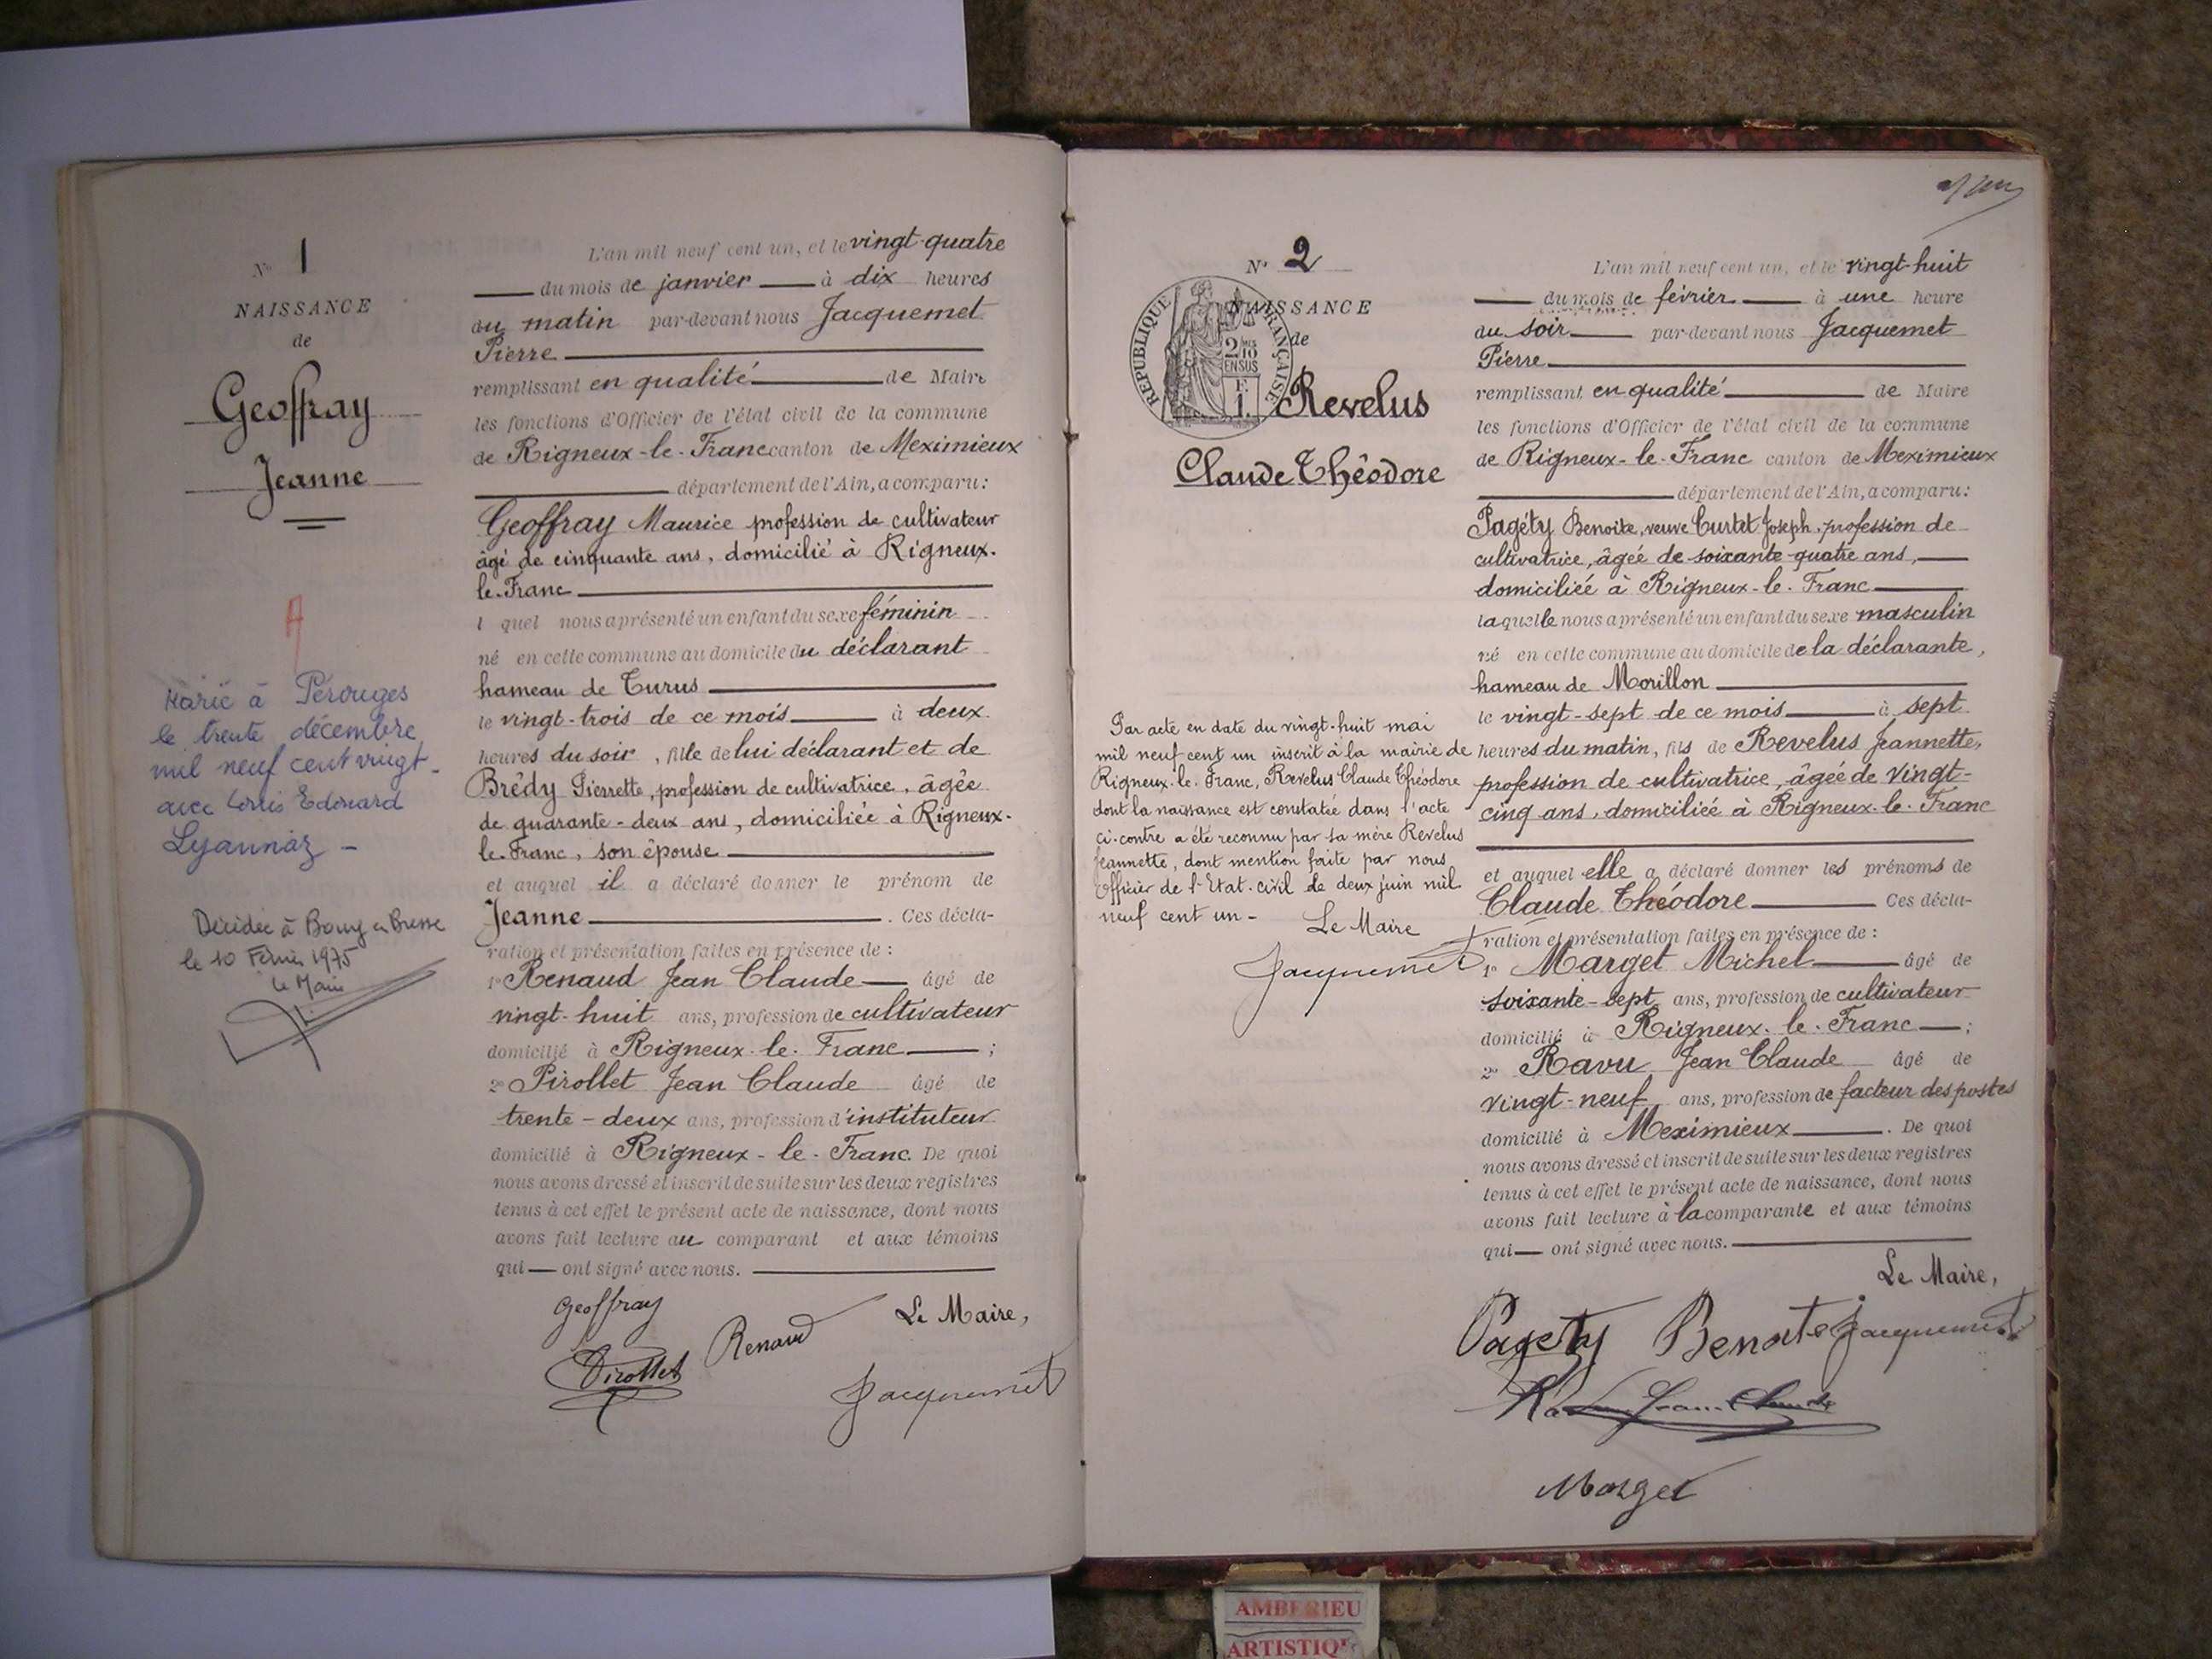 N° 1
NAISSANCE
de
Geoffray
Jeanne
A
Marié à Pérouges
le trente décembre
mil neuf cent vingt -
avec Louis Edouard
Lyaunaz -
Décédée à Bourg en Bresse
le 10 Février 1975
le Maire
L'an mil neuf cent un, et le vingt-quatre
du mois de janvier à dix heures
du matin par-devant nous Jacquemet
Pierre
remplissant en qualité de Maire
les fonctions d'Officier de l'état civil de la commune
de Rigneux-le-Franc canton de Meximieux
département de l'Ain, a comparu :
Geoffray Maurice profession de cultivateur
âgé de cinquante ans, domicilié à Rigneux-
le-Franc
l quel nous a présenté un enfant du sexe féminin
né en cette commune au domicile du déclarant
hameau de Turus
le vingt-trois de ce mois à deux
heures du soir, fille de lui déclarant et de
Brédy Pierrette, profession de cultivatrice, âgée
de quarante-deux ans, domiciliée à Rigneux-
le-Franc, son épouse
et auquel il a déclaré donner le prénom de
Jeanne . Ces décla-
ration et présentation faites en présence de :
1° Renaud Jean Claude âgé de
vingt-huit ans, profession de cultivateur
domicilié à Rigneux-le-Franc ;
2° Pirollet Jean Claude âgé de
trente-deux ans, profession d'instituteur
domicilié à Rigneux-le-Franc. De quoi
nous avons dressé et inscrit de suite sur les deux registres
tenus à cet effet le présent acte de naissance, dont nous
avons fait lecture au comparant et aux témoins
qui ont signé avec nous.
Geoffray
Renaud
Le Maire,
Pirollet
Jacquemet
N° 2
NAISSANCE
de
RÉPUBLIQUE FRANÇAISE
2/10
EN SUS
F.
1.
Revelus
Claude Théodore
Par acte en date du vingt-huit mai
mil neuf cent un inscrit à la mairie de
Rigneux-le-Franc, Revelus Claude Théodore
dont la naissance est constatée dans l'acte
ci-contre a été reconnu par sa mère Revelus
Jeannette, dont mention faite par nous
Officier de l'Etat-civil le deux juin mil
neuf cent un - Le Maire
Jacquemet
L'an mil neuf cent un, et le vingt-huit
du mois de février à une heure
du soir par-devant nous Jacquemet
Pierre
remplissant en qualité de Maire
les fonctions d'Officier de l'état civil de la commune
de Rigneux-le-Franc canton de Meximieux
département de l'Ain, a comparu :
Pagéty Benoite, veuve Curtet Joseph, profession de
cultivatrice, âgée de soixante-quatre ans,
domiciliée à Rigneux-le-Franc
laquelle nous a présenté un enfant du sexe masculin
né en cette commune au domicile de la déclarante,
hameau de Morillon
le vingt-sept de ce mois à sept
heures du matin, fils de Revelus Jeannette,
profession de cultivatrice, âgée de vingt-
cinq ans, domiciliée à Rigneux-le-Franc
et auquel elle a déclaré donner les prénoms de
Claude Théodore Ces décla-
ration et présentation faites en présence de :
1° Marget Michel âgé de
soixante-sept ans, profession de cultivateur
domicilié à Rigneux-le-Franc ;
2° Ravu Jean Claude âgé de
vingt-neuf ans, profession de facteur des postes
domicilié à Meximieux . De quoi
nous avons dressé et inscrit de suite sur les deux registres
tenus à cet effet le présent acte de naissance, dont nous
avons fait lecture à la comparante et aux témoins
qui ont signé avec nous.
Le Maire,
Pagety Benoite Jacquemet
Ravu Jean Claude
Marget
AMBERIEU
ARTISTIQU